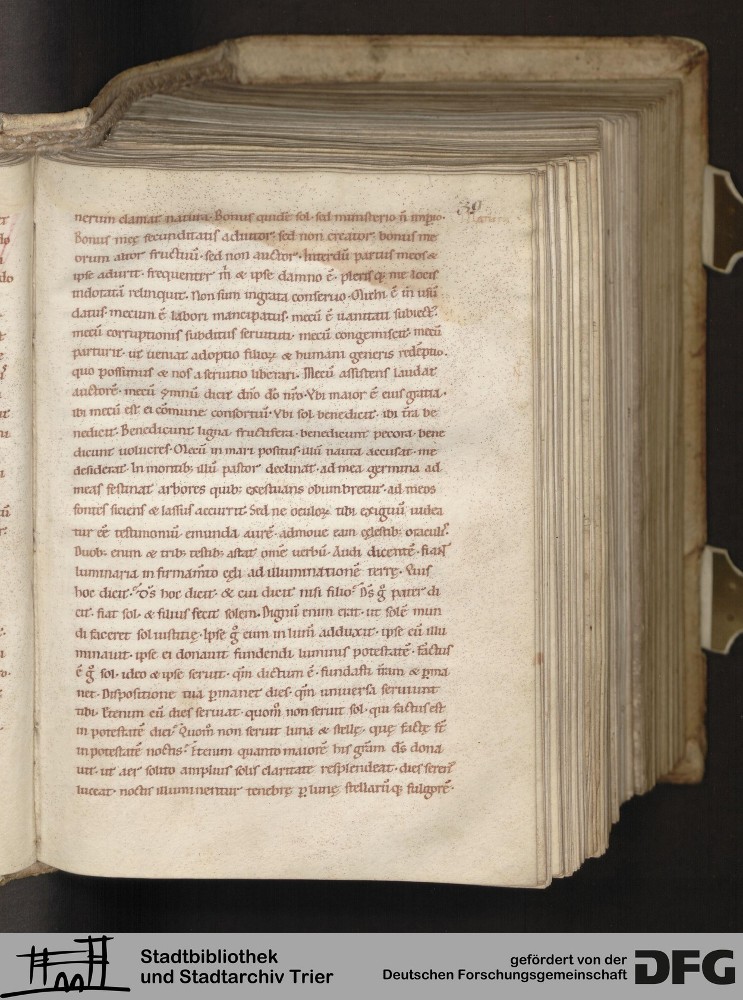 39
nerum clamat natura. Bonus quidē sol. sed ministerio n̄ imꝑio.
Bonus meę fecunditatis adiutor. sed non creator. bonus me
orum altor fructuū. sed non auctor. Interdū partus meos &
ipse adurit. frequenter m̄ & ipse damno ē. pleris q; me locis
indotatā relinquit. Non sum ingrata conseruo. Mihi ē in usū
datus. mecum ē labori mancipatus. mecū ē uanitati subiect᷑.
mecū corruptionis subditus seruituti. mecū congemiscit. mecū
parturit. ut ueniat adoptio filioꝝ & humani generis redēptio.
quo possimus & nos a seruitio liberari. Mecū assistens laudat
auctorē. mecū ymnū dicit dn̄o dō nr̄o. Vbi maior ē eius gratia.
ibi mecū est ei cōmune consortiū. Vbi sol benedicit. ibi t̄ra be
nedicit. Benedicunt ligna fructifera. benedicunt pecora. bene
dicunt uolucres. Mecū in mari positus. illū nauta accusat. me
desiderat. In montib; illū pastor declinat. ad mea germina. ad
meas festinat arbores quib; exestuans obumbretur. ad meos
fontes siciens & lassus accurrit. Sed ne oculoꝝ tibi exiguū uidea
tur eē testimoniū emunda aurē. admoue eam cęlestib; oraculis.
Duob; enim & trib; testib; astat om̄e uerbū. Audi dicentē. fiant
luminaria in firmam̄to cęli ad illuminationē terrę. Quis
hoc dicit? D̄s hoc dicit. & cui dicit nisi filio? D̄s g̊ pater di
cit. fiat sol. & filius fecit solem. Dignū enim erat. ut solē mun
di faceret sol iustitię. Ipse g̊ eum in lum̄ adduxit. ipse eū illu
minauit. ipse ei donauit fundendi luminus potestatē. Factus
ē g̊ sol. ideo & ipse seruit. qm̄ dictum ē. fundasti t̄ram & ꝑma
net. Dispositione tua ꝑmanet dies. qm̄ uniuersa seruiunt
tibi. Etenim cū dies seruiat. quom̊ non seruit sol. qui factus est
in potestatē diei? Quom̊ non seruit luna & stellę. quę factę st̄
in potestatē noctis? Etenim quanto maiorē his gr̄am d̄s dona
uit. ut aer solito amplius solis claritate resplendeat. dies seren᷑
luceat. noctis illuminentur tenebrę ꝑ lunę stellarū q; fulgorē.
Stadtbibliothek
und Stadtarchiv Trier
gefördert von der
Deutschen Forschungsgemeinschaft
DFG